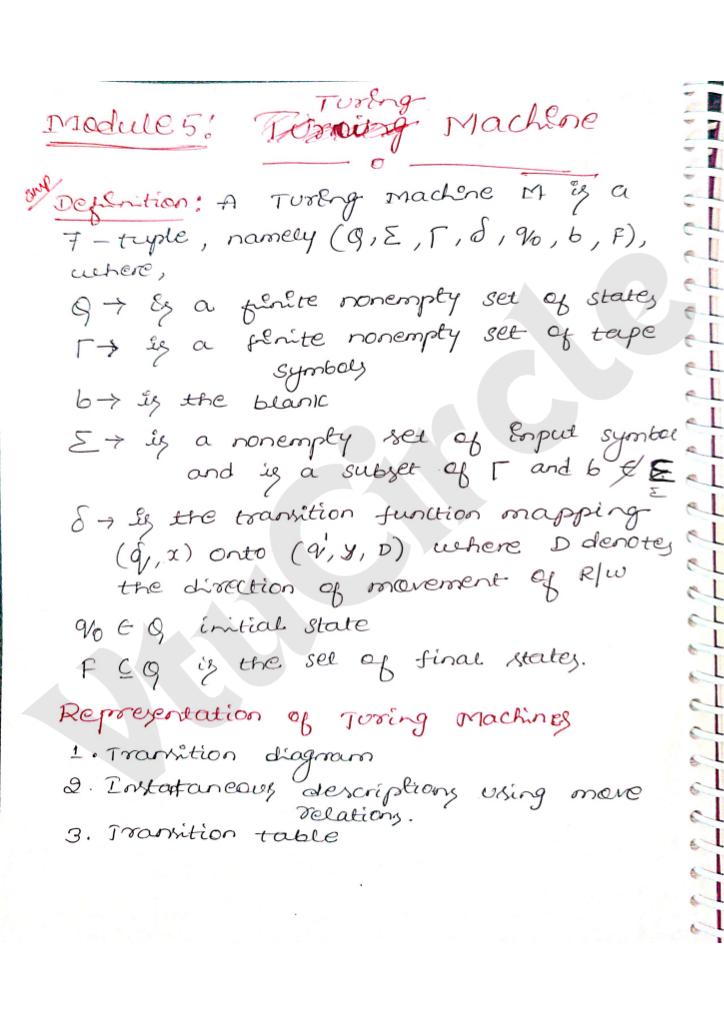 Module 5: Turing Machine
imp
Definition: A Turing Machine M is a
7-tuple, namely (Q, Σ, Γ, δ, q0, b, F),
where,
Q → is a finite nonempty set of states
Γ → is a finite nonempty set of tape
symbols
b → is the blank
Σ → is a nonempty set of Input symbol
and is a subset of Γ and b ∉ Σ
Σ
δ → is the transition function mapping
(q, x) onto (q', y, D) where D denotes
the direction of movement of R/W
q0 ∈ Q initial state
F ⊆ Q is the set of final states.
Representation of Turing Machines
1. Transition diagram
2. Instataneous descriptions using move
relations.
3. Transition table
VtuCircle